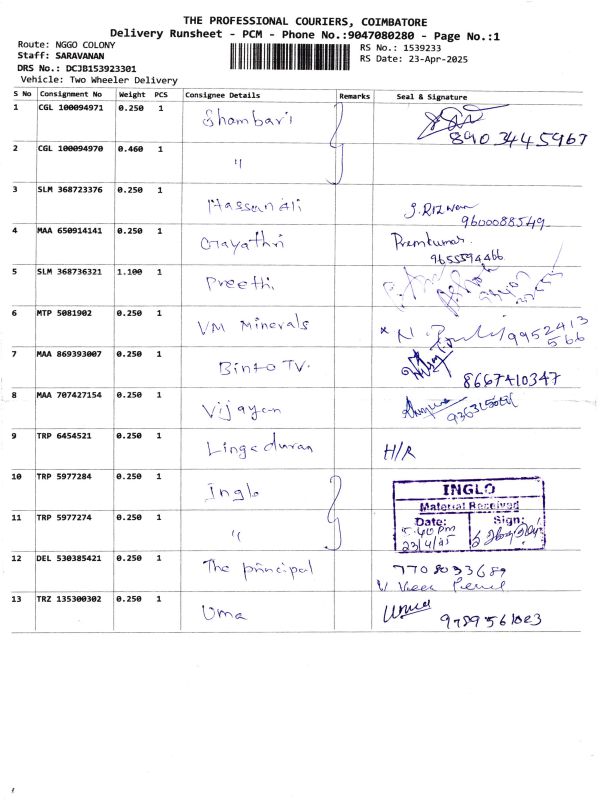 THE PROFESSIONAL COURIERS, COIMBATORE
Delivery Runsheet - PCM - Phone No.:9047080280 - Page No.:1
Route: NGGO COLONY
RS No.: 1539233
Staff: SARAVANAN
RS Date: 23-Apr-2025
DRS No.: DCJB153923301
Vehicle: Two Wheeler Delivery
S No Consignment No Weight PCS Consignee Details Remarks Seal & Signature
1 CGL 100094971 0.250 1 Shambavi 8903445967
2 CGL 100094970 0.460 1 "
3 SLM 368723376 0.250 1 Hassan Ali J. Rizwan
9600088549
4 MAA 650914141 0.250 1 Gayathri Premkumar.
9655594466
5 SLM 368736321 1.100 1 Preethi
6 MTP 5081902 0.250 1 VM Minerals 9952413
566
7 MAA 869393007 0.250 1 Binto TV. 8667410347
8 MAA 707427154 0.250 1 Vijayan
9 TRP 6454521 0.250 1 Lingaduran H/R
10 TRP 5977284 0.250 1 Inglo INGLO
Material Received
11 TRP 5977274 0.250 1 " Date: Sign:
5.40 pm
23/4/25
12 DEL 530385421 0.250 1 The principal 7708033689
13 TRZ 135300302 0.250 1 Uma Uma
9789561023